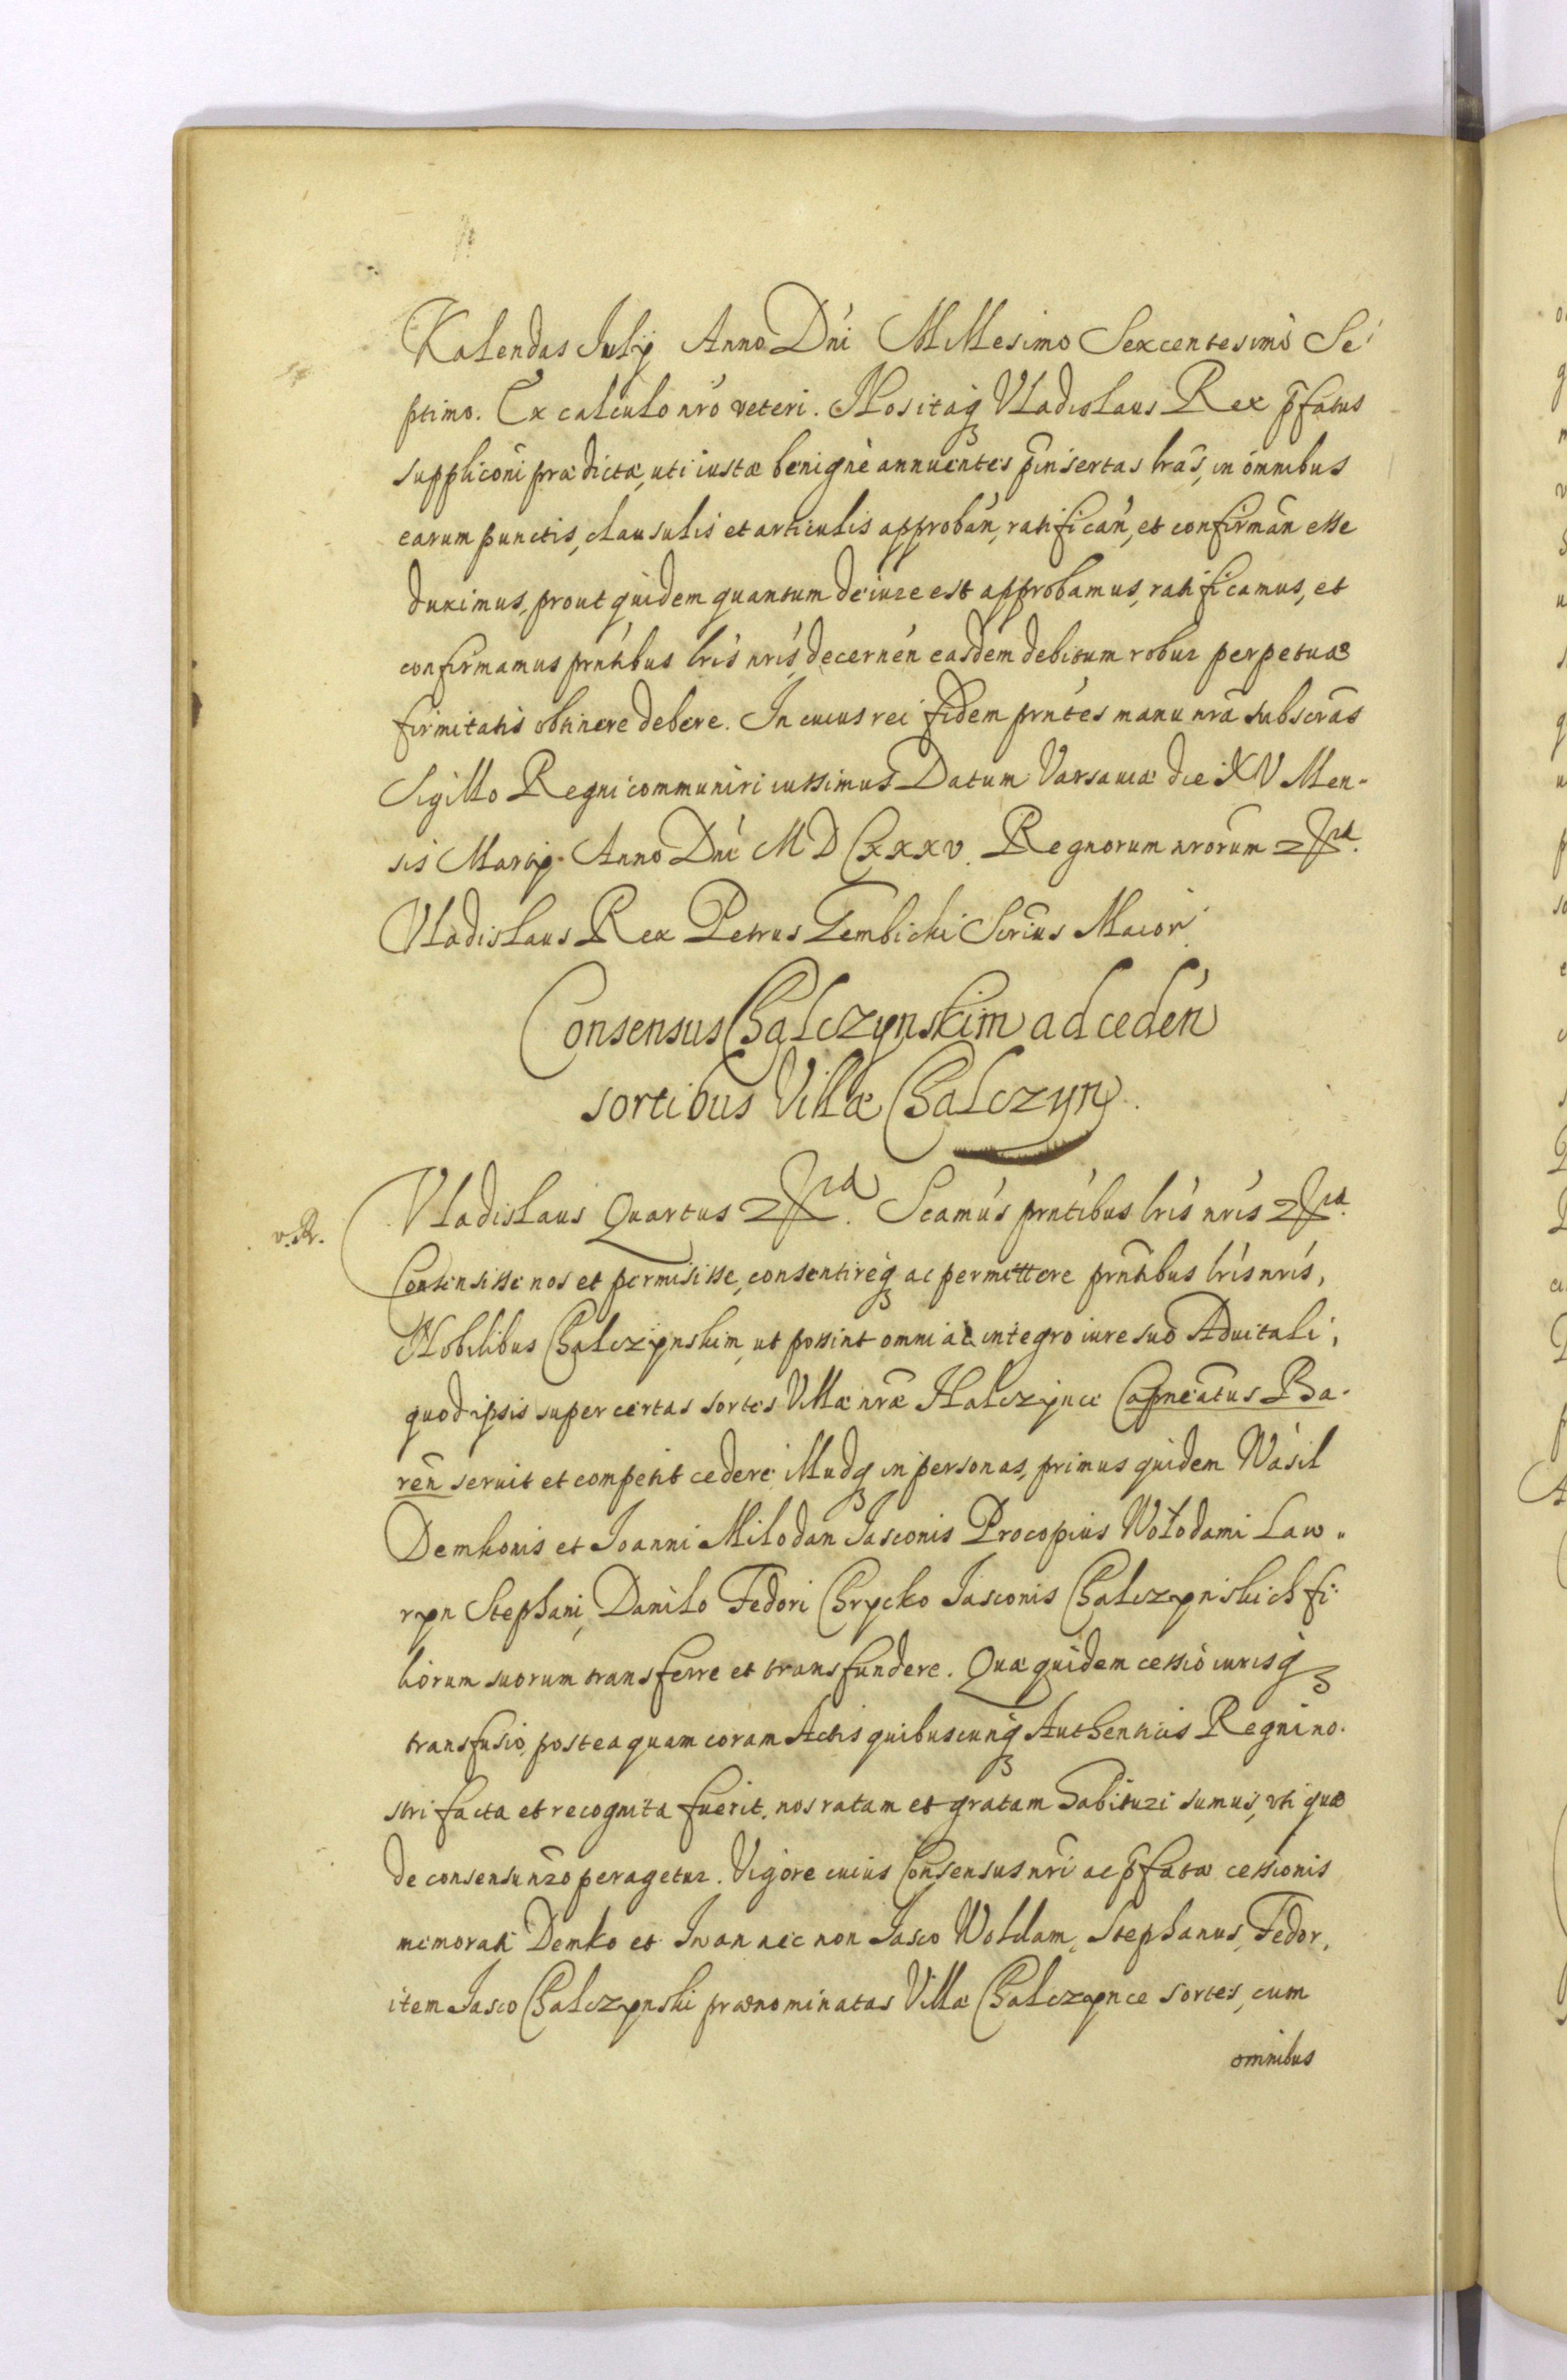 Kalendas Julij Anno Dni Millesimo Sexcentesimo Se
ptimo. Ex calculo nro veteri. Nos itaq Vladislaus Rex pfatus
suppliconi prædictæ, uti iustæ benignè annuentes pinsertas lras, in omnibus
earum punctis, clausulis et articulis approban, ratifican, et confirman esse
duximus, prout quidem quantum de iure est approbamus, ratificamus, et
confirmamus prntibus lris nris, decernen easdem debitum robur perpetuæ
firmitatis obtinere debere. In cuius rei fidem prntes manu nra subscras
Sigillo Regni communiri iussimus Datum Varsaviæ die XV Men-
sis Martij. Anno Dni MDCXXXV. Regnorum nrorum
Vladislaus Rex Petrus Gembicki Scrius Maior
Consensus Chalczynskim ad ceden
sortibus Villæ Chalczyn.
v.R. Vladislaus Quartus Scamus prntibus lris nris
Consensisse nos et permisisse, consentireq ac permittere prntibus lris nris,
Nobilibus Chalczynskim, ut possint omni ac integro iure suo Aduitali,
quod ipsis super certas sortes Villæ nræ Halczynce Capneatus Ba-
ren seruit et competit cedere illudq in personas, primus quidem Wasil
Demkonis et Joanni Milodan Jasconis Procopius Wołodami Law-
ryn Stephani, Danilo Fedori Chrycko Jasconis Chalczynskich fi-
liorum suorum transferre et transfundere. Quæ quidem cessio iurisq
transfusio, posteaquam coram Actis quibuscunq Authenticis Regni no-
stri facta et recognita fuerit, nos ratam et gratam habituri sumus, uti quæ
de consensu nro peragetur. Vigore cuius Consensus nri ac pfatæ cessionis
memorati Demko et Iwan nec non Jasco Woldam, Stephanus, Fedor,
item Jasco Chalczynski prænominatas Villæ Chalczynce sortes, cum
omnibus